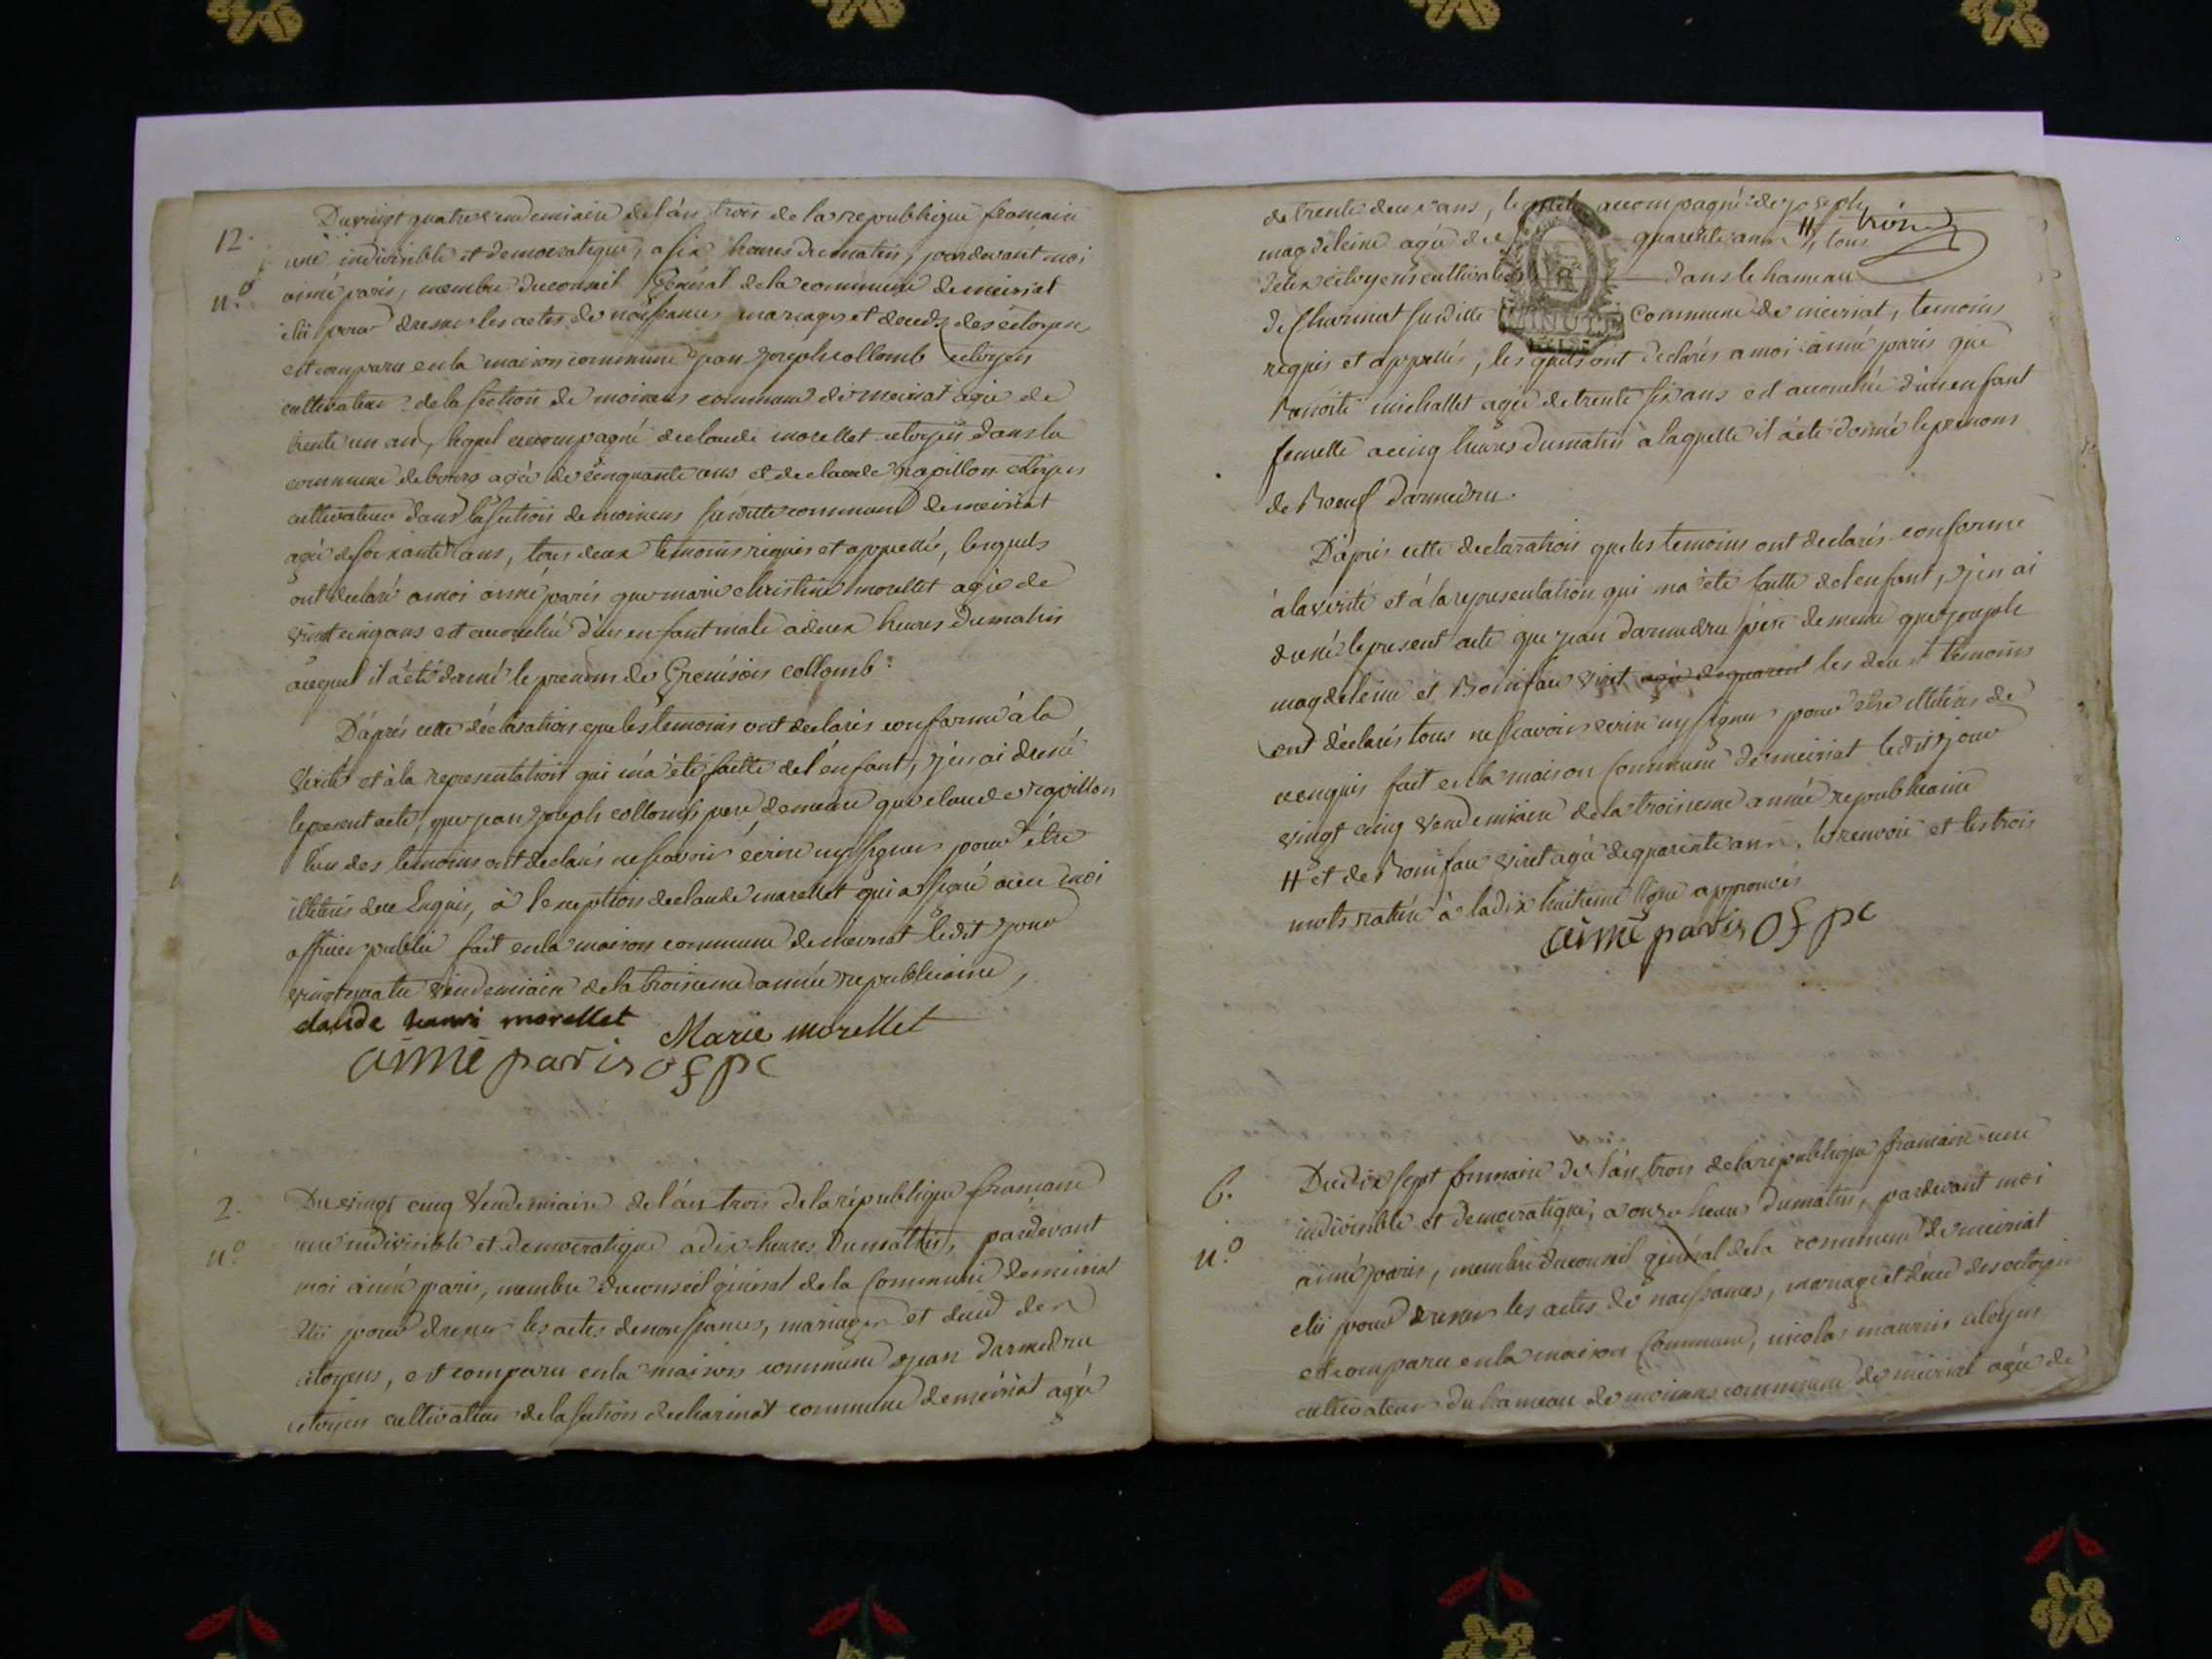 12.
n.o
Du vingt quatre vendemiaire de l'an trois de la republique francaise
une indivisible et democratique, a six heures du matin, pardevant moi
aimé paris, membre du conseil Général de la commune de meiriat
élü pour dresser les actes de naissances mariages et deceds des citoyens
est comparu en la maison commune jean joseph collomb citoyen
cultivateur de la section de moinens commune de meiriat agé de
trente un an, lequel accompagné de claude morellet citoyen dans la
commune de bourg agée de cinquante ans et de claude papillon citoyen
cultivateur dans la section de moinens susditte commune de meiriat
agé de soixante ans, tous deux temoins requis et appellés, lesquels
ont declaré a moi aimé paris que marie christine morellet agée de
vingt cinq ans est accouchée d'un enfant male a deux heures du matin
auquel il a été donné le prenom de collomb
D'aprés cette déclaration que les temoins ont declarés conforme à la
verité et à la representation qui m'a été faitte de l'enfant, j'en ai dressé
le present acte, que jean joseph collomb pere de meme que claude papillon
l'un des temoins ont declarés ne scavoir écrire ny signer pour être
illiterés de ce enquis, à l'exception de claude morellet qui a signé avec moi
officier public fait en la maison commune de meiriat ledit jour
vingt quatre vendemiaire de la troisieme année republicaine,
claude henri morellet
Marie morellet
aimé paris of pc
2.
n.o
Du vingt cinq Vendemiaire de l'an trois de la république francaise
une indivisible et democratique a dix heures du matin, pardevant
moi aimé paris, membre du conseil général de la Commune de meiriat
élü pour dresser les actes de naissances, mariages et deced des
citoyens, est comparu en la maison commune jean darmedru
citoyen cultivateur de la section de charinat commune de meiriat agé
de trente deux ans, lequel accompagné de joseph
magdeleine agée de quarente ans H, tous trois
deux citoyens cultivateurs dans le hameau
de Charinat susditte Commune de meiriat, temoins
MINUTE
requis et appellés, lesquels ont declarés a moi aimé paris que
Benoite michallet agée de trente six ans est accouchée d'un enfant
femelle a cinq heures du matin a laquelle il a été donné le prenom
de darmedru.
D'aprés cette declaration que les temoins ont declarés conforme
à la verité et à la representation qui m'a été faitte de l'enfant, j'en ai
dressé le present acte que jean darmedru pére de meme que joseph
magdeleine et Boniface viret agée de quarent les deux temoins
ont déclarés tous ne scavoir ecrire ny signer pour etre illiterés de
ce enquis fait en la maison Commune de meiriat ledit jour
vingt cinq Vendemiaire de la troisieme année republicaine
H et de Boniface viret agée de quarente ans, le renvoi et les trois
mots raturé à la dix huitieme ligne approuvés
aimé paris of pc
6.
n.o
Du dix sept frimaire de l'an trois de la république francaise une
indivisible et democratique, a onze heures du matin, pardevant moi
aimé paris, membre du conseil général de la commune de meiriat
élü pour dresser les actes de naissances, mariages et deced des citoyens
est comparu en la maison Commune, nicolas maurin citoyen
cultivateur du hameau de moinens commune de meiriat agée de